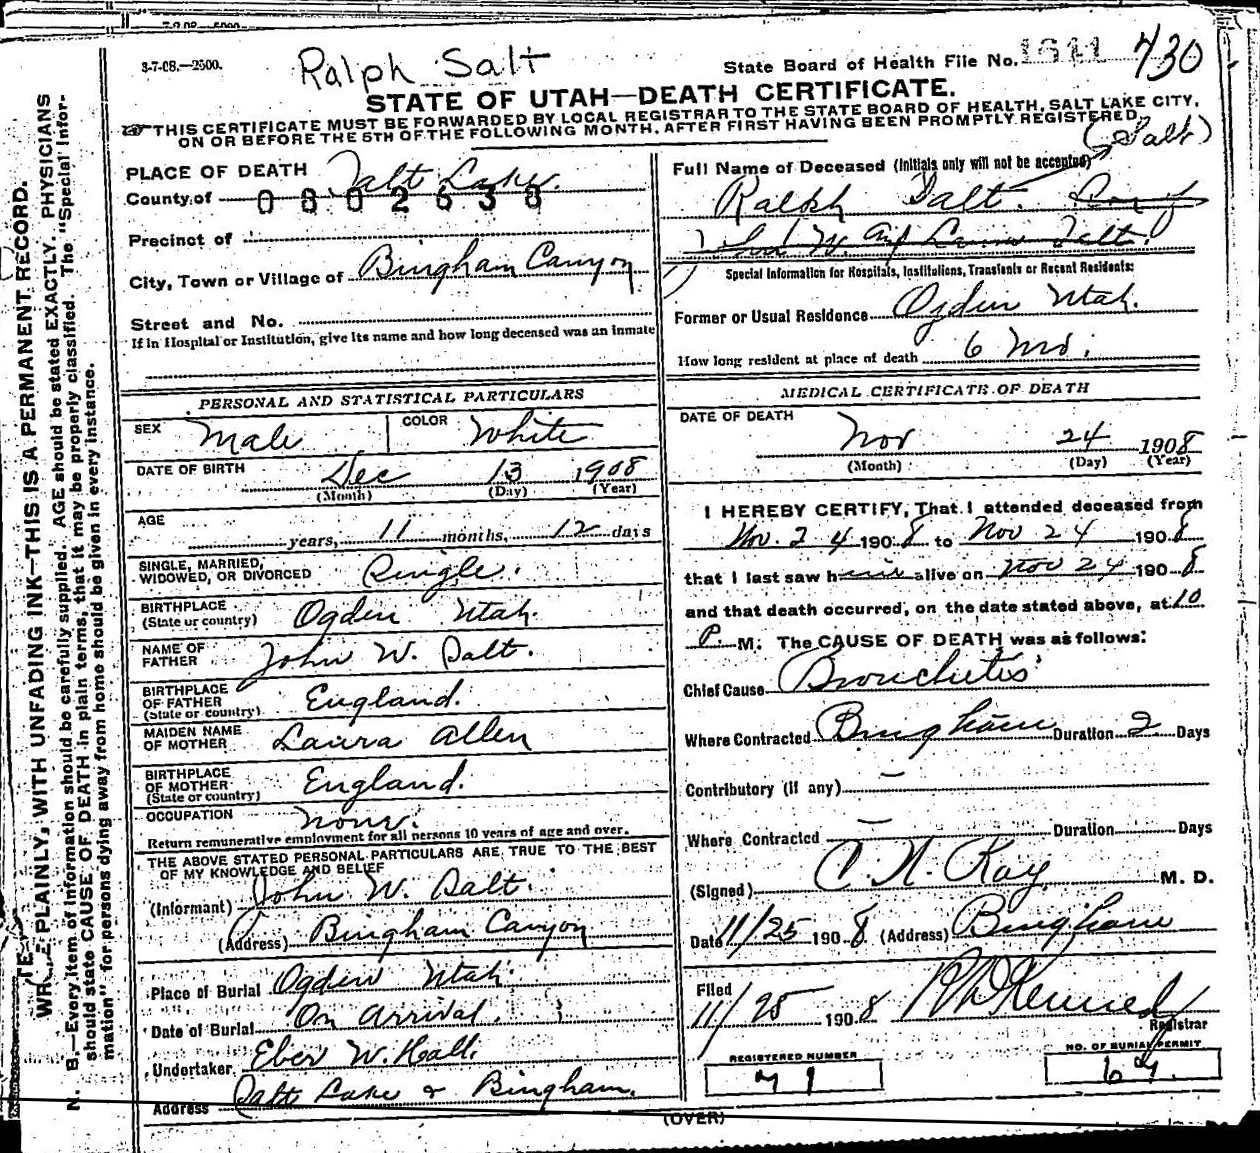 3-7-08.—2500.
Ralph Salt
State Board of Health File No. 1611 730
STATE OF UTAH—DEATH CERTIFICATE.
THIS CERTIFICATE MUST BE FORWARDED BY LOCAL REGISTRAR TO THE STATE BOARD OF HEALTH, SALT LAKE CITY,
ON OR BEFORE THE 5TH OF THE FOLLOWING MONTH, AFTER FIRST HAVING BEEN PROMPTLY REGISTERED.
WRITE PLAINLY, WITH UNFADING INK—THIS IS A PERMANENT RECORD.
N. B.—Every item of information should be carefully supplied. AGE should be stated EXACTLY. PHYSICIANS
should state CAUSE OF DEATH in plain terms, that it may be properly classified. The "Special Infor-
mation" for persons dying away from home should be given in every instance.
PLACE OF DEATH
County of Salt Lake.
0802638
Precinct of
City, Town or Village of Bingham Canyon
Street and No.
If in Hospital or Institution, give its name and how long deceased was an inmate
PERSONAL AND STATISTICAL PARTICULARS
SEX Male COLOR White
DATE OF BIRTH Dec 13 1908
(Month) (Day) (Year)
AGE years, 11 months, 12 days
SINGLE, MARRIED,
WIDOWED, OR DIVORCED Single.
BIRTHPLACE
(State or country) Ogden Utah.
NAME OF
FATHER John W. Salt.
BIRTHPLACE
OF FATHER
(State or country) England.
MAIDEN NAME
OF MOTHER Laura Allen
BIRTHPLACE
OF MOTHER
(State or country) England.
OCCUPATION None.
Return remunerative employment for all persons 10 years of age and over.
THE ABOVE STATED PERSONAL PARTICULARS ARE TRUE TO THE BEST
OF MY KNOWLEDGE AND BELIEF
(Informant) John W. Salt.
(Address) Bingham Canyon
Place of Burial Ogden Utah.
Date of Burial On arrival.
Undertaker Eber W. Hall.
Address Salt Lake & Bingham.
(Salt)
Full Name of Deceased (Initials only will not be accepted)
Ralph Salt. Son of
John W. and Laura Salt.
Special Information for Hospitals, Institutions, Transients or Recent Residents:
Former or Usual Residence Ogden Utah.
How long resident at place of death 6 Mo.
MEDICAL CERTIFICATE OF DEATH
DATE OF DEATH
Nov 24 1908
(Month) (Day) (Year)
I HEREBY CERTIFY, That I attended deceased from
Nov. 24 1908 to Nov 24 1908
that I last saw him alive on Nov 24 1908
and that death occurred, on the date stated above, at 10
P M. The CAUSE OF DEATH was as follows:
Chief Cause Bronchitis
Where Contracted Bingham Duration 2 Days
Contributory (if any) —
Where Contracted — Duration Days
(Signed) C. N. Ray M. D.
Date 11/25 1908 (Address) Bingham
Filed
11/25 1908
Registrar
REGISTERED NUMBER
71
NO. OF BURIAL PERMIT
69.
(OVER)